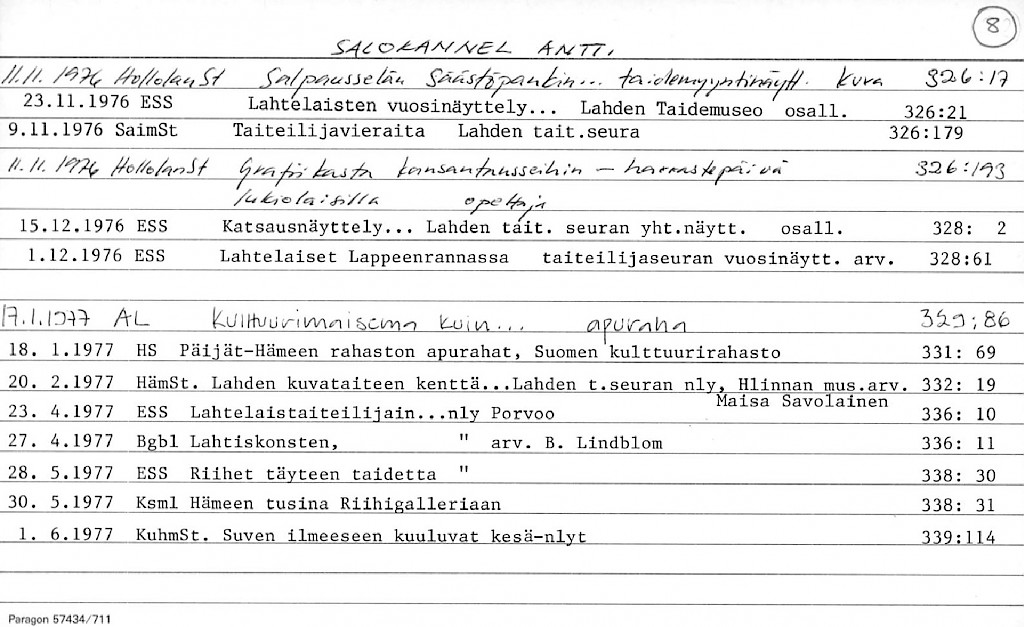 8
SALOKANNEL ANTTI.
11.11.1976 HollolanSt Salpausselän Säästöpankin... taidemyyntinäytt. Kuva 326:17
23.11.1976 ESS Lahtelaisten vuosinäyttely... Lahden Taidemuseo osall. 326:21
9.11.1976 SaimSt Taiteilijavieraita Lahden tait.seura 326:179
11.11.1976 HollolanSt Grafiikasta kansantansseihin – harrastepäivä 326:193
lukiolaisilla opettaja
15.12.1976 ESS Katsausnäyttely... Lahden tait. seuran yht.näytt. osall. 328: 2
1.12.1976 ESS Lahtelaiset Lappeenrannassa taiteilijaseuran vuosinäytt. arv. 328:61
17.1.1977 AL Kulttuurimaisema kuin... apuraha 329:86
18. 1.1977 HS Päijät-Hämeen rahaston apurahat, Suomen kulttuurirahasto 331: 69
20. 2.1977 HämSt. Lahden kuvataiteen kenttä...Lahden t.seuran nly, Hlinnan mus.arv. 332: 19
Maisa Savolainen
23. 4.1977 ESS Lahtelaistaiteilijain...nly Porvoo 336: 10
27. 4.1977 Bgbl Lahtiskonsten, " arv. B. Lindblom 336: 11
28. 5.1977 ESS Riihet täyteen taidetta " 338: 30
30. 5.1977 Ksml Hämeen tusina Riihigalleriaan 338: 31
1. 6.1977 KuhmSt. Suven ilmeeseen kuuluvat kesä-nlyt 339:114
Paragon 57434/711